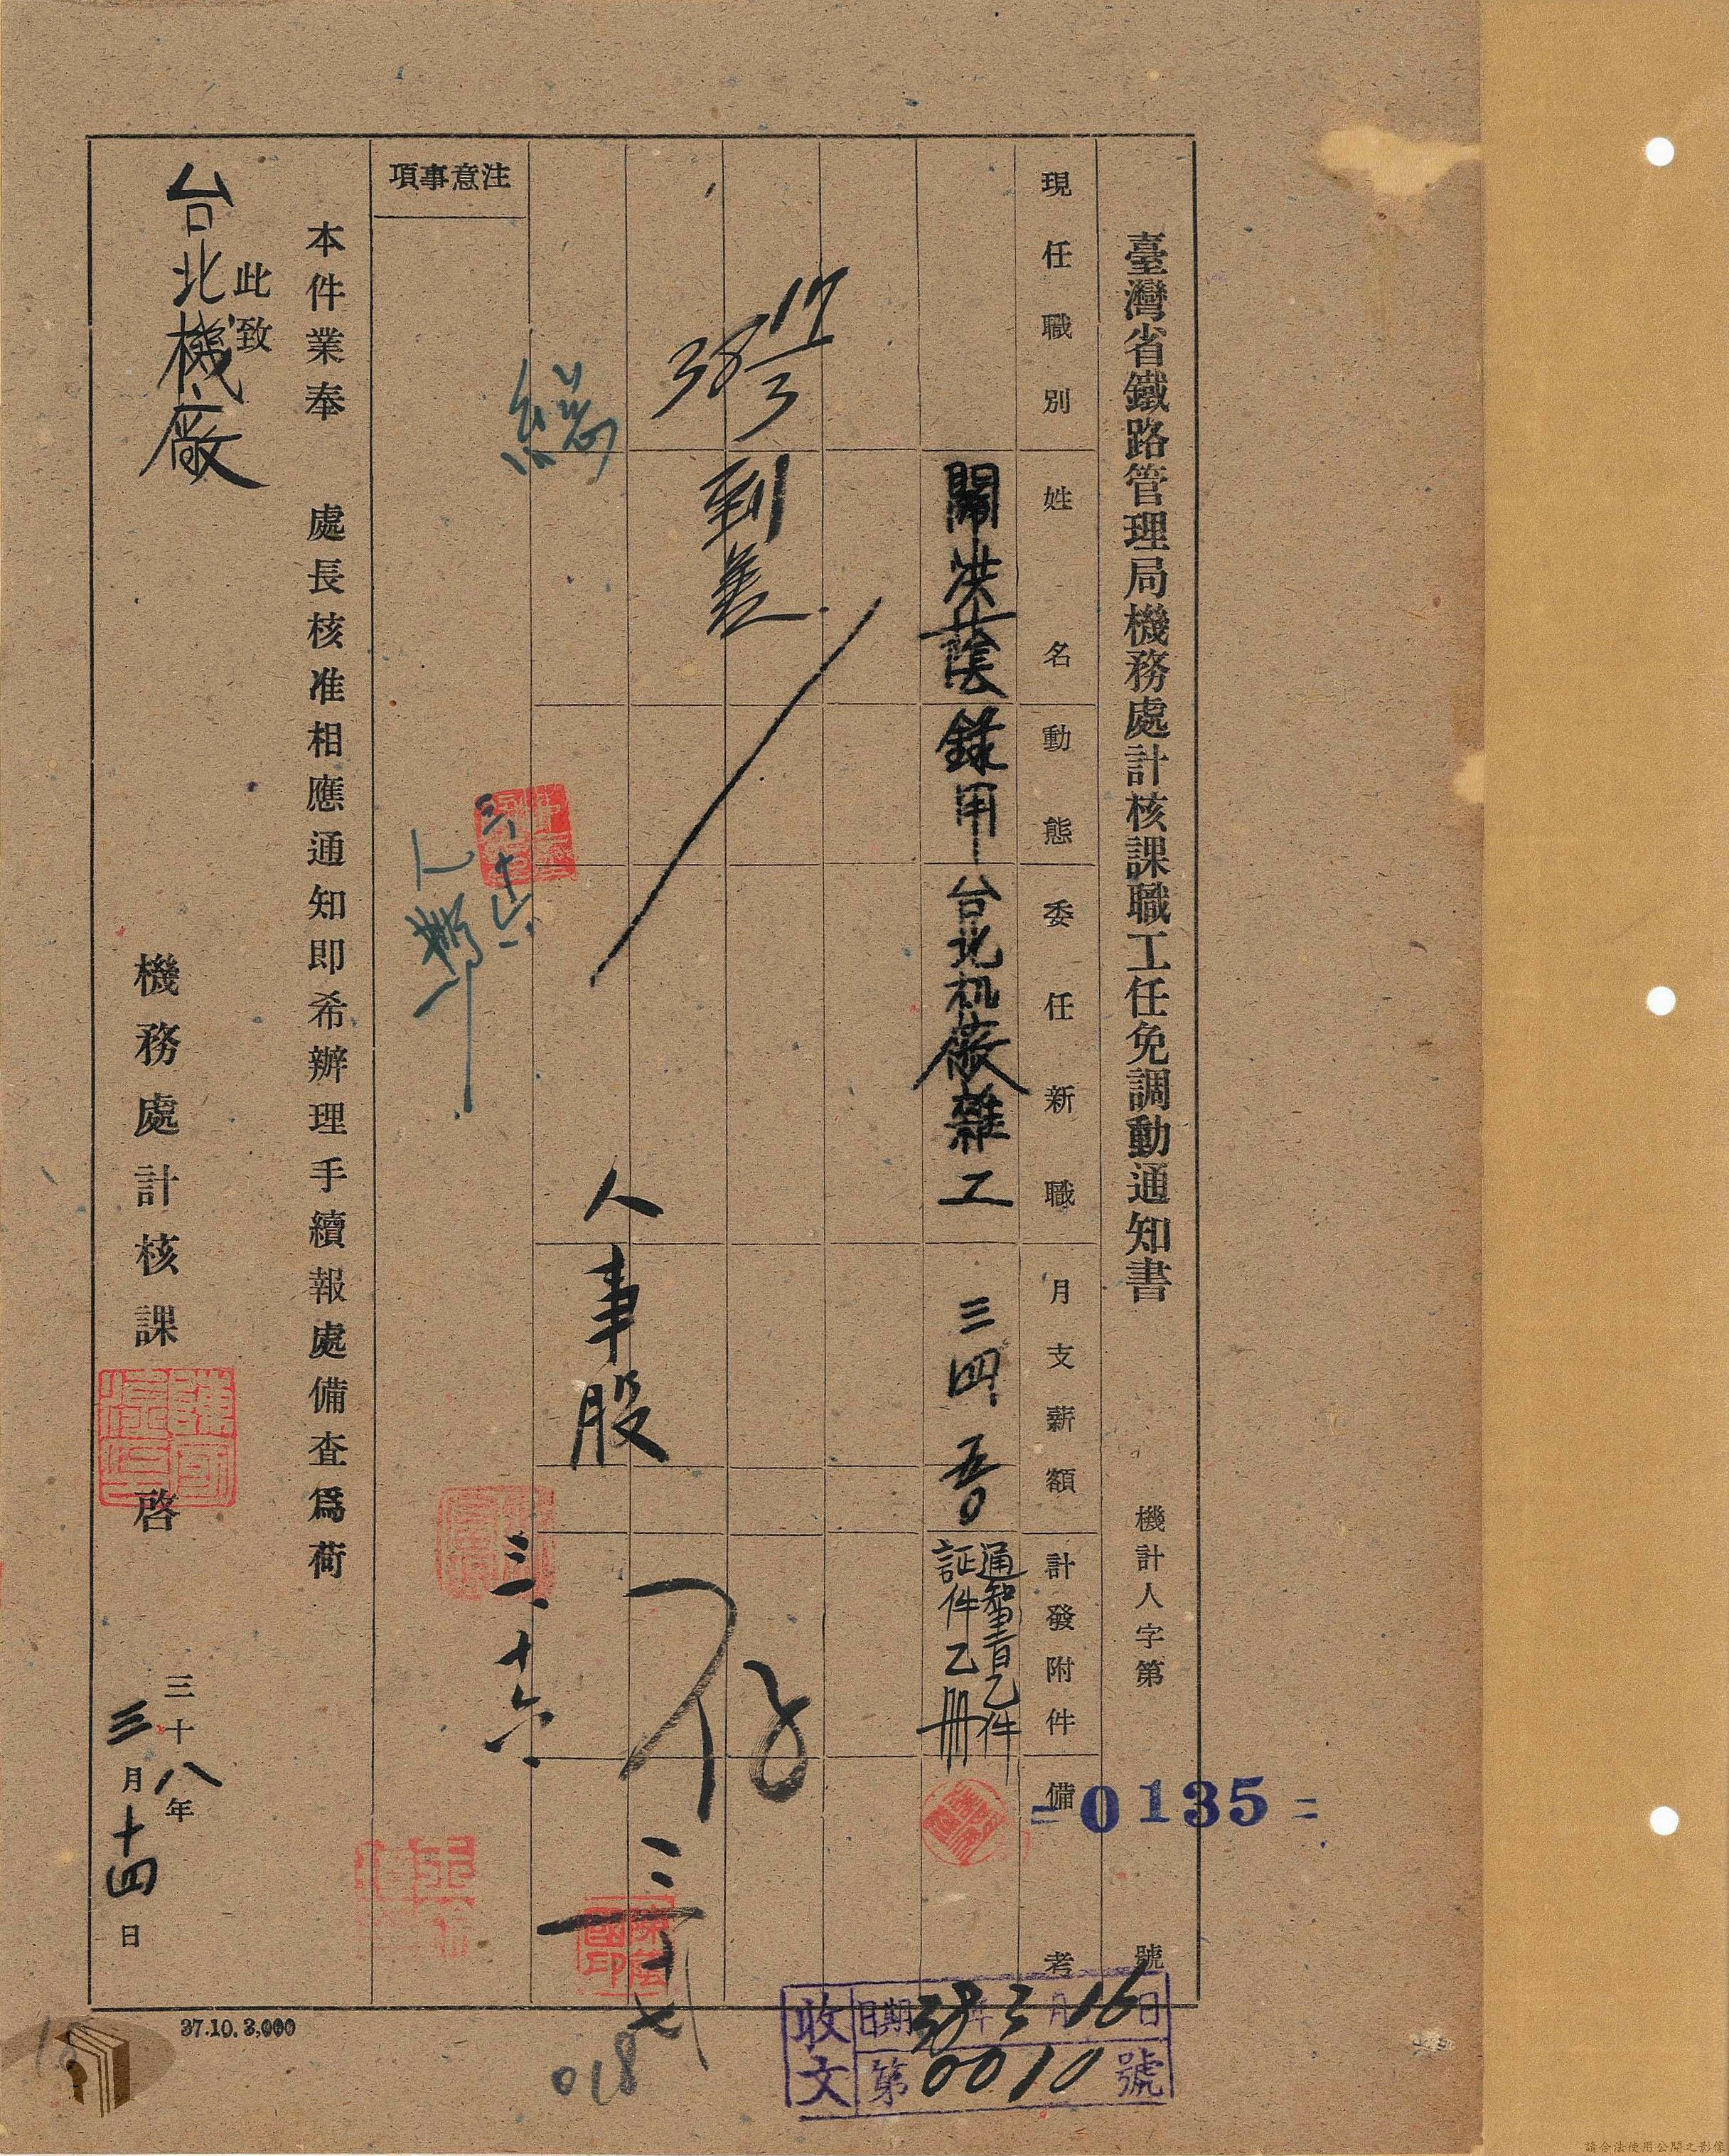 臺灣省鐵路管理局機務處計核課職工任免調動通知書
機計人字第
=0135=
號
現任職別
姓名
動態
委任新職
月支薪額
計發附件
備考
關洪蔭
錄用
台北机厰雜工
三四
通知書乙件
証件乙册
38 17/3
到差
人事股
三
十六
存
三
十七
總
三
十六
注意事項
本件業奉
處長核准相應通知即希辦理手續報處備查爲荷
此致
台北機廠
機務處計核課
啓
三十八年
三月十四日
收文
日期38年3月16日
第0010號
37.10.3,000
018
請合法使用公開之影像